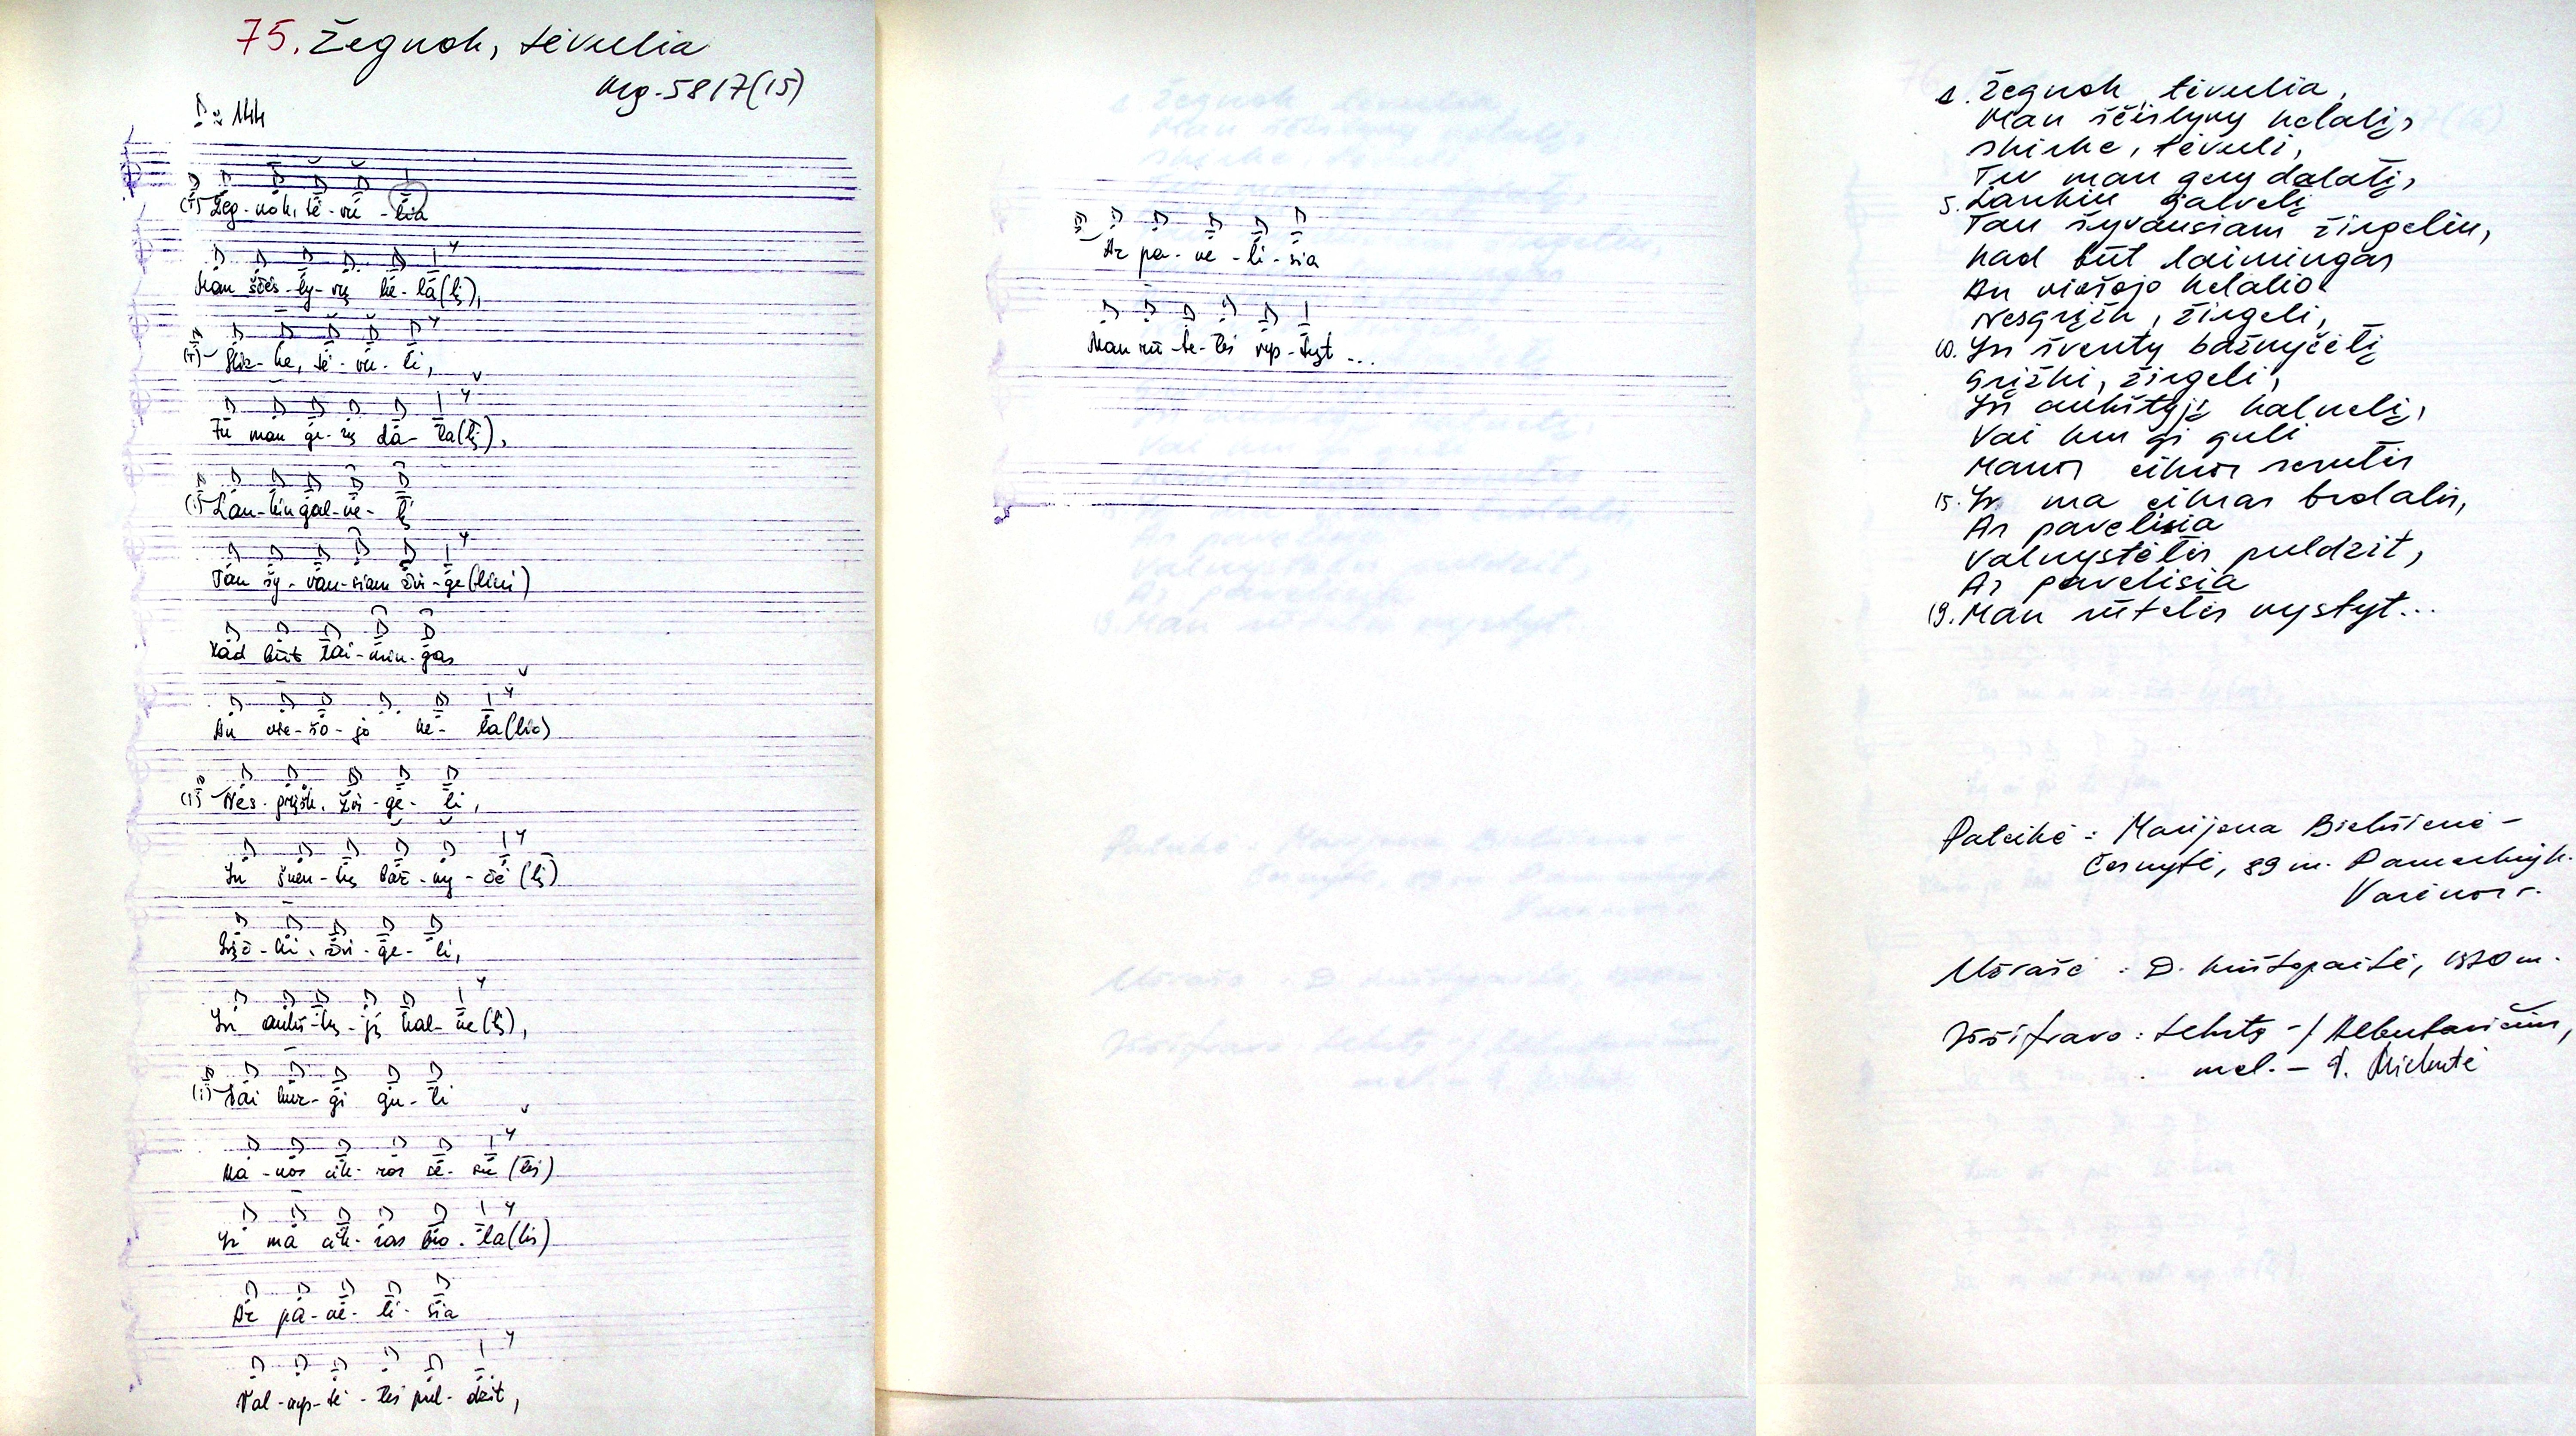 75. Žegnok, tėvulia
Mg. 5817(15)
♪ ≈ 144
(i) Žeg-nok, tė-vu-lia
Man ščės-ly-vų ke-la(lį),
Skir-ke, tė-vu-li,
Tu man ge-rų da-la(lį),
Lan-kin gal-ve-lį
Tan šy-van-siam žir-ge(liui)
Kad būt lai-min-gas
An vie-šo-jo ke-la(lio)
Nes-grįžk, žir-ge-li,
In šven-tų baž-ny-čė(lį)
Grįž-ki, žir-ge-li,
In aukš-tų-jį kal-ne(lį),
Vai kur gi gu-li
Ma-nos cik-ros se-su(tės)
Ir ma cik-ras bro-la(lis)
Ar pa-ve-li-sia
Val-nys-tė-lės pul-dzit,
Ar pa-ve-li-sia
Man rū-te-lės vys-tyt ...
1. Žegnok, tėvulia,
Man ščėslyvų kelalį,
Skirke, tėvuli,
Tu man gerų dalalį,
5. Lankin galvelį
Tan šyvansiam žirgeliu,
Kad būt laimingas
An viešojo kelalio.
Nesgrįžk, žirgeli,
10. In šventų bažnyčėlį
Grįžki, žirgeli,
In aukštųjį kalnelį,
Vai kur gi guli
Manos cikros sesutės
15. Ir ma cikras brolalis,
Ar pavelisia
Valnystėlės puldzit,
Ar pavelisia
19. Man rūtelės vystyt...
Pateikė: Marijona
Černytė, 89 m.
Varėnos r.
Užrašė: D. Krištopaitė, 1970 m.
Iššifravo: tekstą –
mel. –